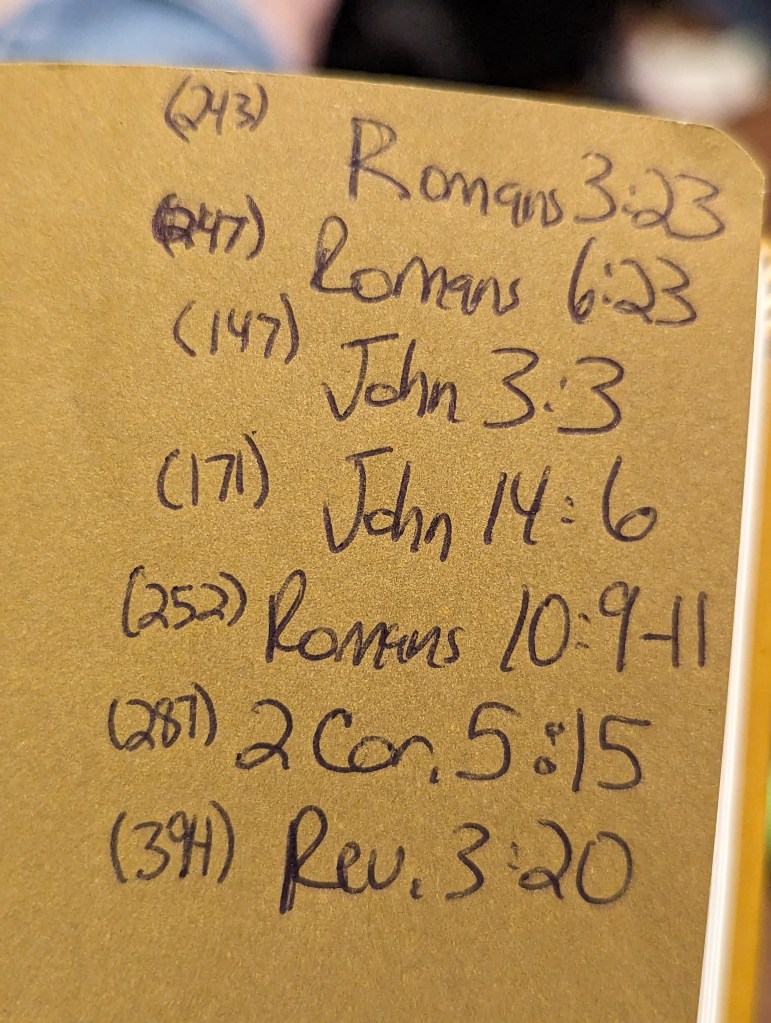 (243) Romans 3:23
(247) Romans 6:23
(147) John 3:3
(171) John 14:6
(252) Romans 10:9-11
(287) 2 Cor. 5:15
(394) Rev. 3:20